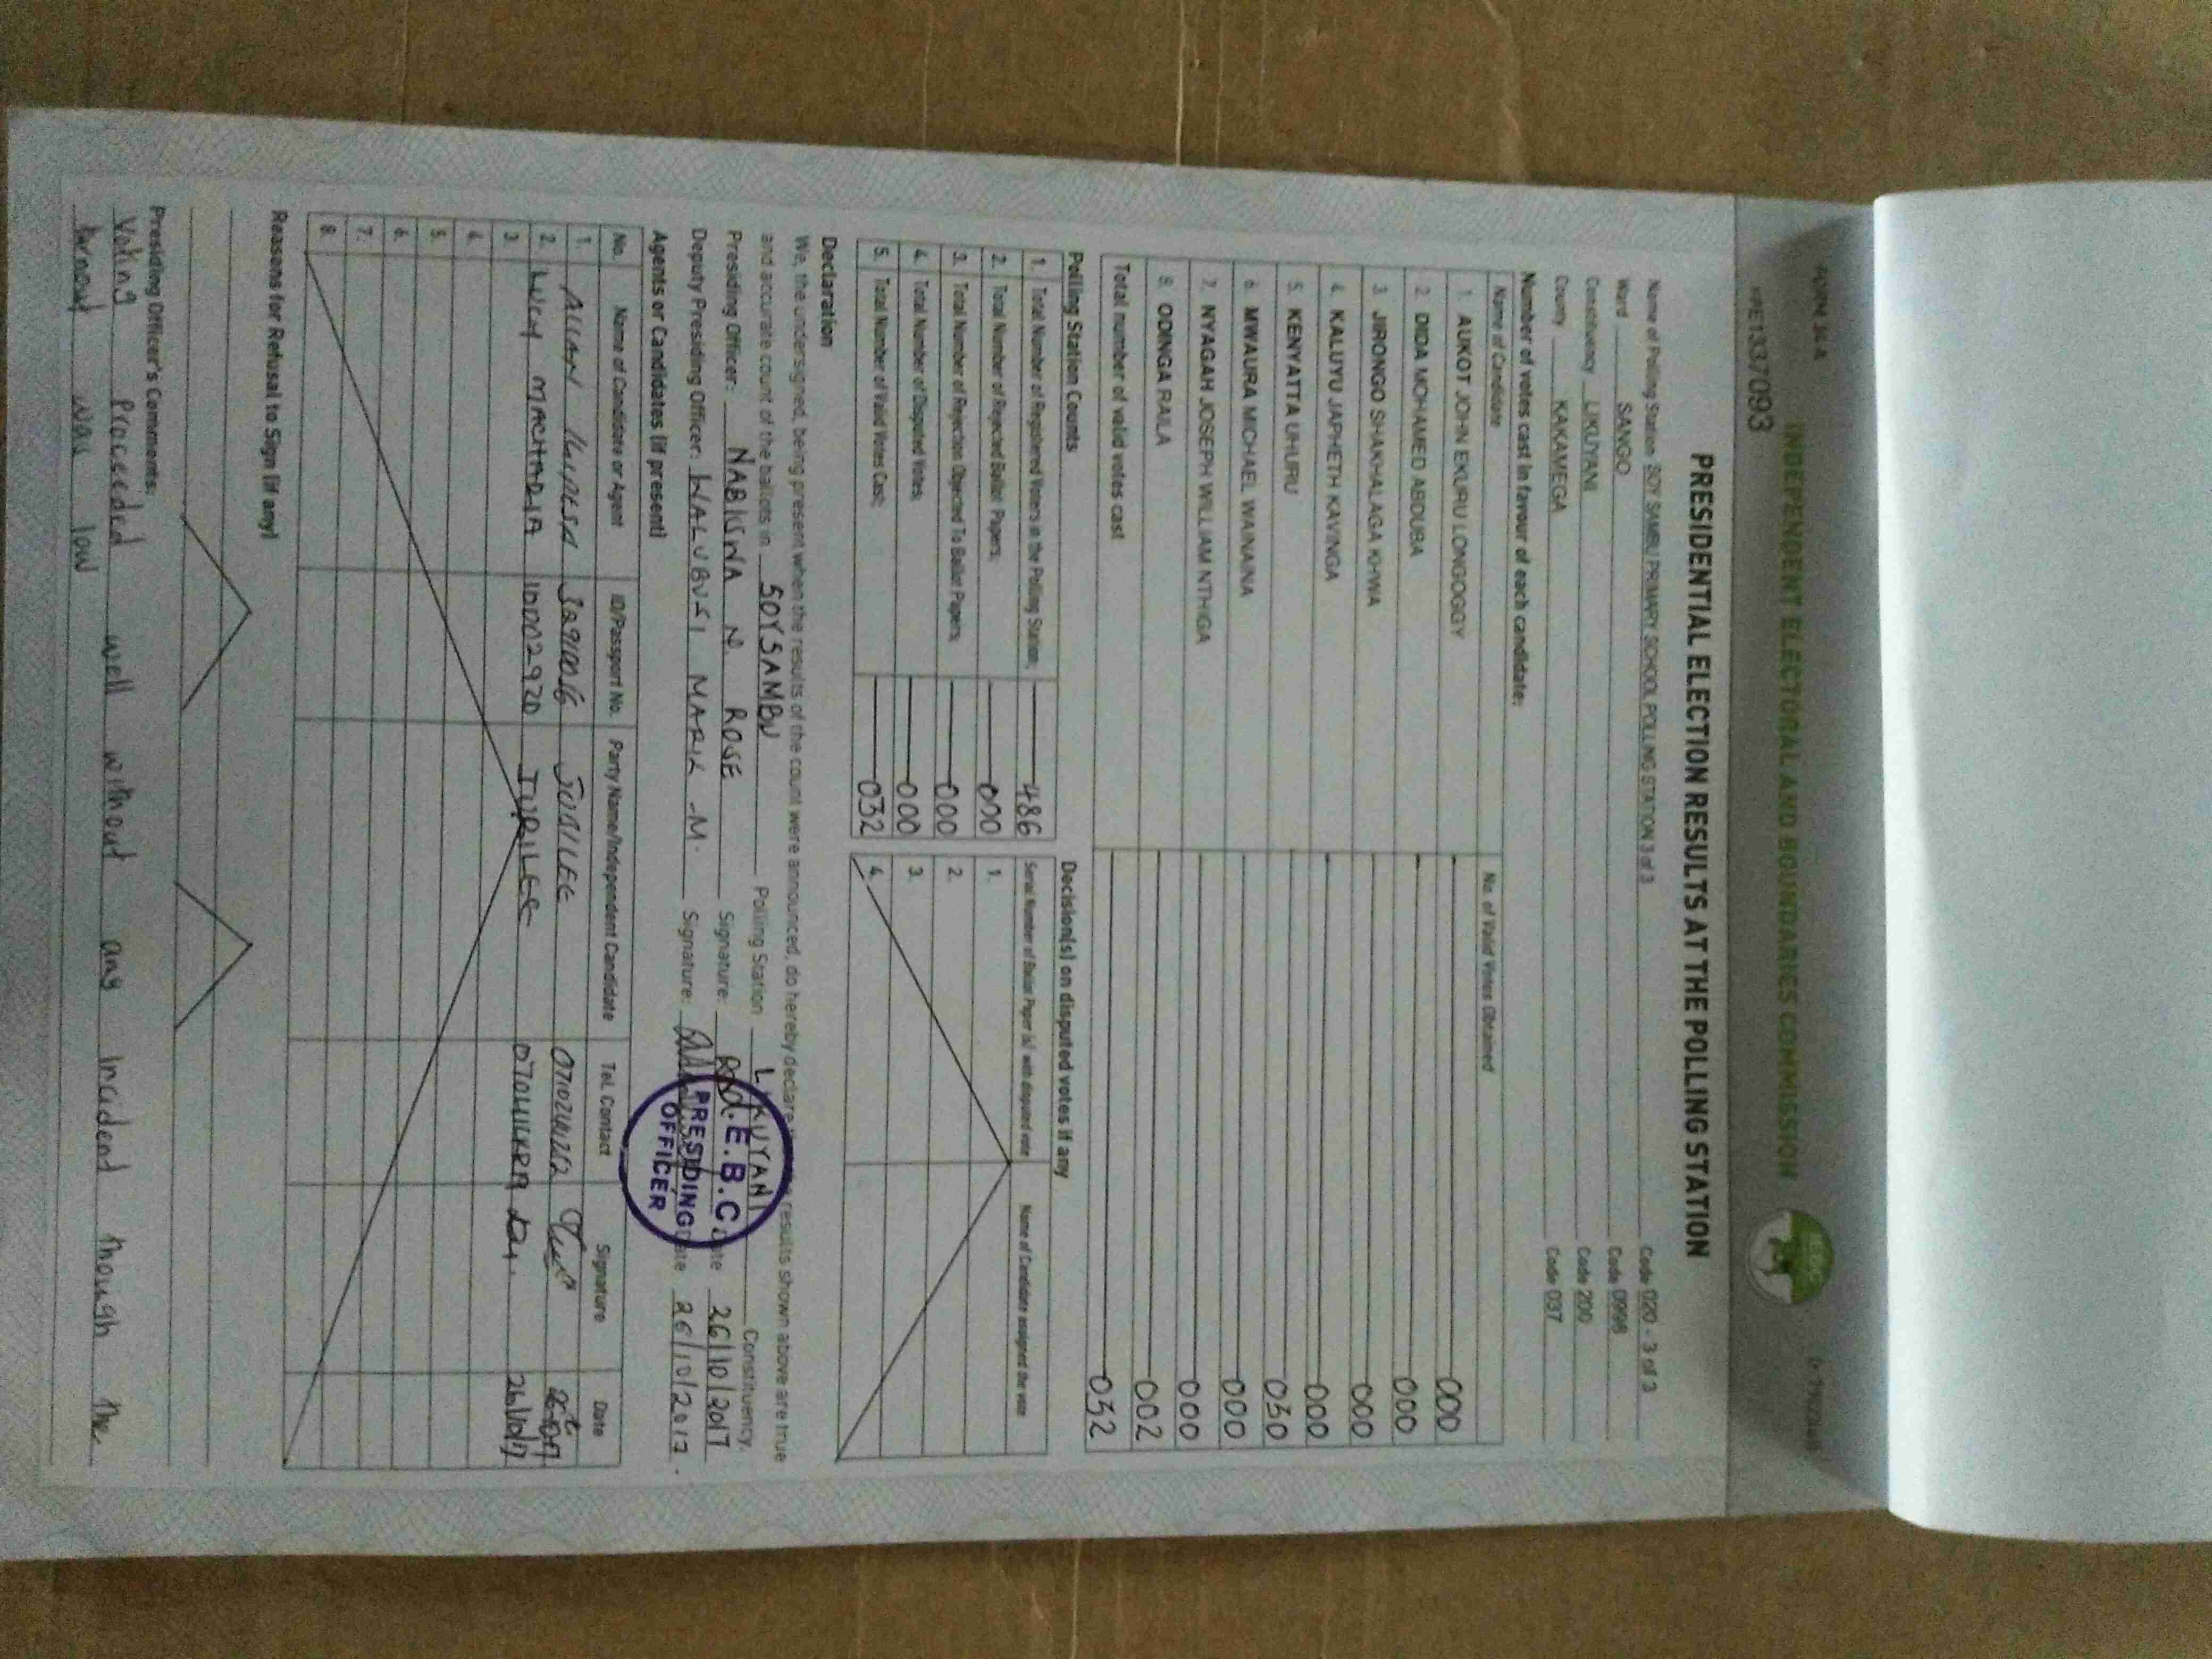 FORM 34 A
INDEPENDENT ELECTORAL AND BOUNDARIES COMMISSION
IEBC
PRE1337093
PRESIDENTIAL ELECTION RESULTS AT THE POLLING STATION
Name of Polling Station SOY SAMBU PRIMARY SCHOOL POLLING STATION 3 of 3 Code 020 - 3 of 3
Ward SANGO Code 0998
Constituency LIKUYANI Code 200
County KAKAMEGA Code 037
Number of votes cast in favour of each candidate:
Name of Candidate No. of Valid Votes Obtained
1. AUKOT JOHN EKURU LONGOGGY 000
2. DIDA MOHAMED ABDUBA 000
3. JIRONGO SHAKHALAGA KHWA 000
4. KALUYU JAPHETH KAVINGA 000
5. KENYATTA UHURU 030
6. MWAURA MICHAEL WAINAINA 000
7. NYAGAH JOSEPH WILLIAM NTHIGA 000
8. ODINGA RAILA 002
Total number of valid votes cast 032
Polling Station Counts
1. Total Number of Registered Voters in the Polling Station: 486
2. Total Number of Rejected Ballot Papers: 000
3. Total Number of Rejection Objected To Ballot Papers: 000
4. Total Number of Disputed Votes: 000
5. Total Number of Valid Votes Cast: 032
Decision(s) on disputed votes if any
Serial Number of Ballot Paper (s) with disputed vote Name of Candidate assigned the vote
1.
2.
3.
4.
Declaration
We, the undersigned, being present when the results of the count were announced, do hereby declare results shown above are true
and accurate count of the ballots in SOYSAMBU Polling Station LIKUYANI Constituency.
Presiding Officer: NABISWA N. ROSE Signature: Date 26/10/2017
Deputy Presiding Officer: WALUBUSI MARK -M. Signature: Date 26/10/2017.
I.E.B.C.
PRESIDING
OFFICER
Agents or Candidates (if present)
No. Name of Candidate or Agent ID/Passport No. Party Name/Independent Candidate Tel. Contact Signature Date
1. ALLAN 32910016 JUBILEE
2. LUCY 10002920 JUBILEE 26/10/17
3.
4.
5.
6.
7.
8.
Reasons for Refusal to Sign (if any)
Presiding Officer's Comments:
Voting proceeded well without any incidend though the
turnout was low